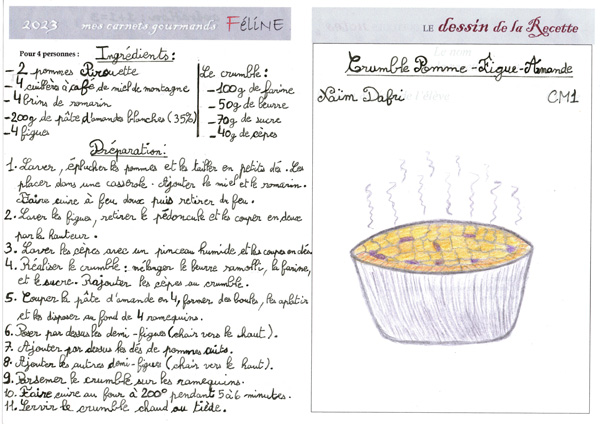 2023 mes carnets gourmands FéLiNE
Pour 4 personnes : Ingrédients :
- 2 pommes Pirouette
- 4 cuillères à café de miel de montagne
- 4 brins de romarin
- 200g de pâte d'amandes blanches (35%)
- 4 figues
Le crumble :
- 100g de farine
- 50g de beurre
- 70g de sucre
- 40g de cèpes
Préparation :
1. Laver, éplucher les pommes et les tailler en petits dés. Les
placer dans une casserole. Ajouter le miel et le romarin.
Faire cuire à feu doux puis retirer du feu.
2. Laver les figues, retirer le pédoncule et les couper en deux
par la hauteur.
3. Laver les cèpes avec un pinceau humide et les couper en dés.
4. Réaliser le crumble : mélanger le beurre ramolli, la farine,
et le sucre. Rajouter les cèpes au crumble.
5. Couper la pâte d'amande en 4, former des boules, les aplatir
et les disposer au fond de 4 ramequins.
6. Poser par dessus les demi-figues (chair vers le haut).
7. Ajouter par dessus les dés de pommes cuits.
8. Ajouter les autres demi-figues (chair vers le haut).
9. Parsemer le crumble sur les ramequins.
10. Faire cuire au four à 200° pendant 5 à 6 minutes.
11. Servir le crumble chaud ou tiède.
LE dessin de la Recette
Crumble Pomme - Figue - Amande
Naïm Dafri CM1